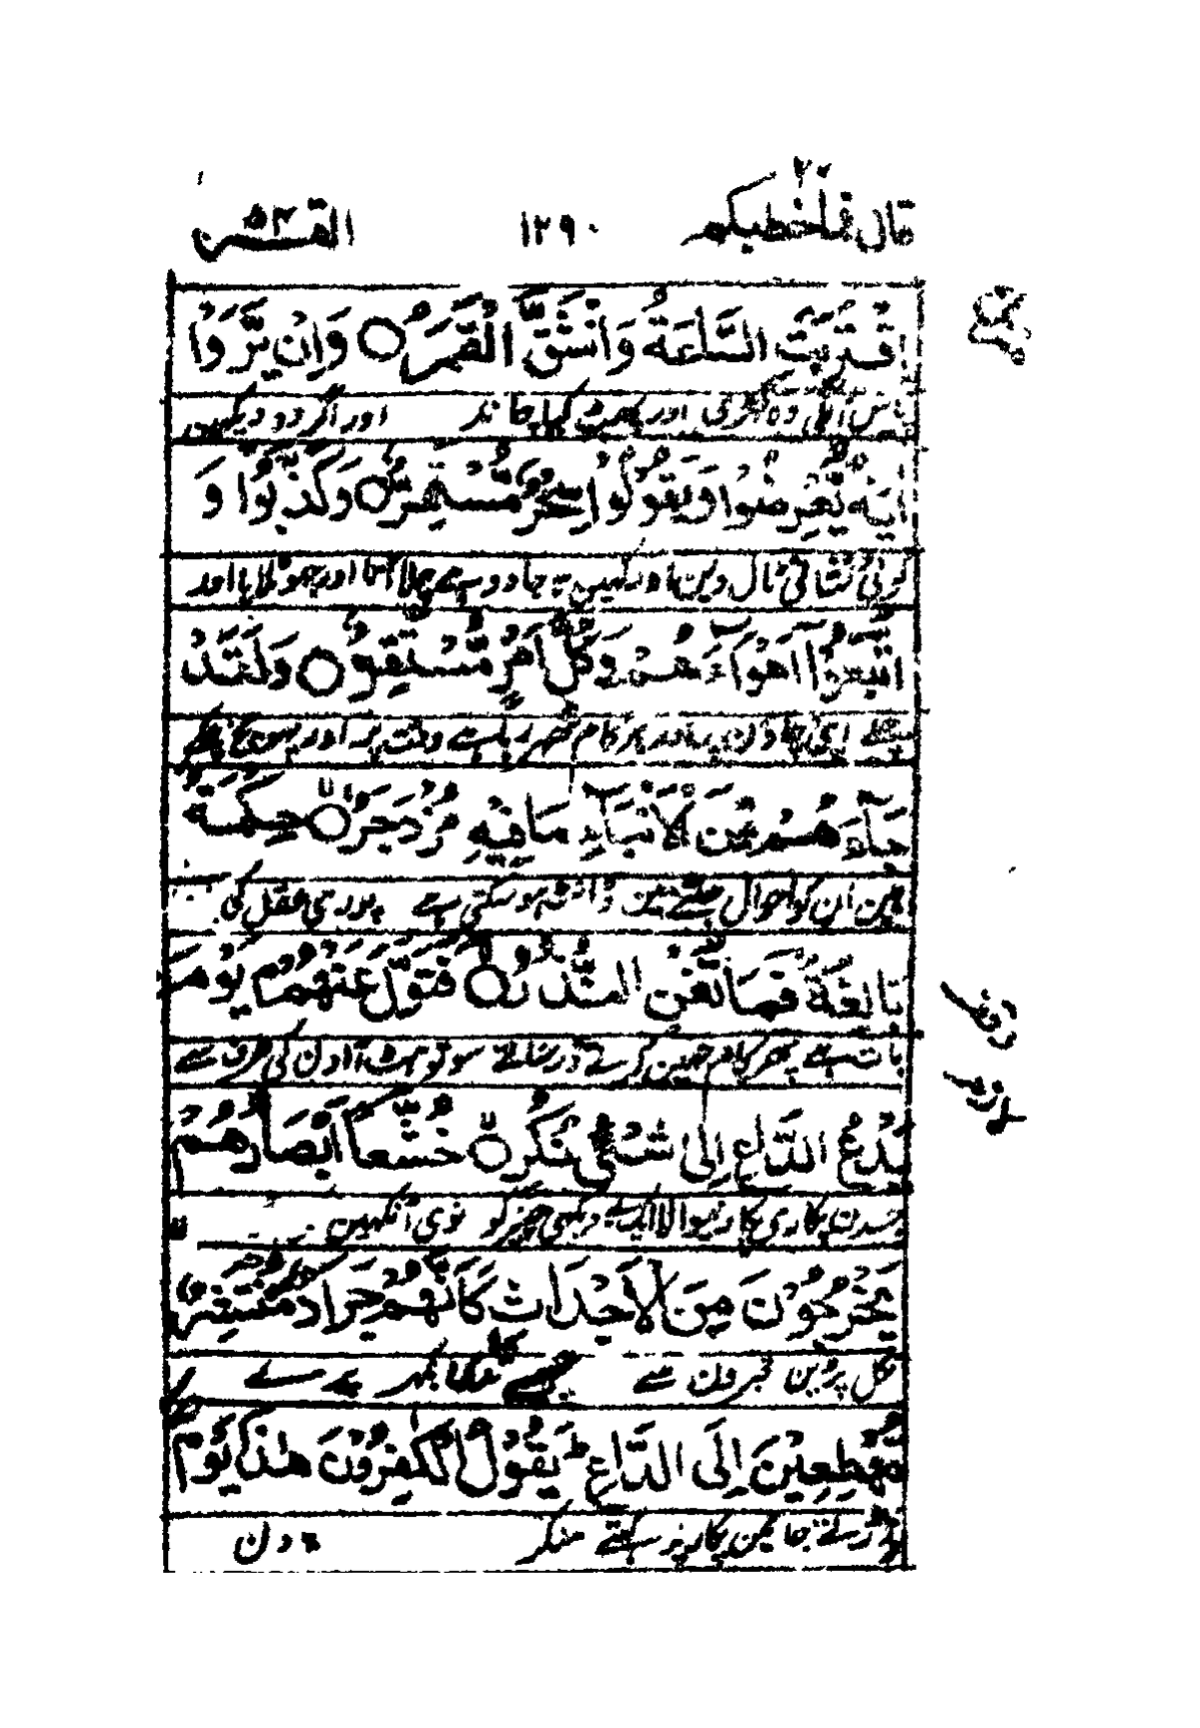 قال فما خطبكم ٢٧
١٢٩٠
القمر ٥٤
اِقْتَرَبَتِ السَّاعَةُ وَانْشَقَّ الْقَمَرُ ○ وَاِنْ يَّرَوْا
پاس آلگی وہ گھڑی اور پھٹ گیا چاند اور اگر وو دیکھیں
اٰيَةً يُّعْرِضُوْا وَيَقُوْلُوْا سِحْرٌ مُّسْتَمِرٌّ ○ وَكَذَّبُوْا وَ
کوئی نشانی ٹال دین اور کہیں یہ جادو ہے چلا آتا اور جھٹلایا اور
اتَّبَعُوْٓا اَهْوَآءَهُمْ وَكُلُّ اَمْرٍ مُّسْتَقِرٌّ ○ وَلَقَدْ
چلے اپنی چاؤن پر اور ہر کام ٹھہر رہا ہے وقت پر اور پہنچ چکے
جَآءَهُمْ مِّنَ الْاَنْۢبَآءِ مَا فِيْهِ مُزْدَجَرٌ ○ حِكْمَةٌۢ
ہین ان کو احوال جتنے مین ڈانٹ ہو سکتی ہے پوری عقل کی
بَالِغَةٌ فَمَا تُغْنِ النُّذُرُ ○ فَتَوَلَّ عَنْهُمْ يَوْمَ
بات ہے پھر کام نہین کرتے ڈر سناتے سو تو ہٹ آ ان کی طرف سے
يَدْعُ الدَّاعِ اِلٰى شَيْءٍ نُّكُرٍ ○ خُشَّعًا اَبْصَارُهُمْ
جسدن پکاری پکارنیوالا ایک دیکھی چیز کو نوی آنکھین
يَخْرُجُوْنَ مِنَ الْاَجْدَاثِ كَاَنَّهُمْ جَرَادٌ مُّنْتَشِرٌ
نکل پڑین قبرون سے جیسے ٹڈی بکھر پڑے
مُّهْطِعِيْنَ اِلَى الدَّاعِ يَقُوْلُ الْكٰفِرُوْنَ هٰذَا يَوْمٌ
دوڑتے جائین پکارنے پر کہتے منکر یہ دن